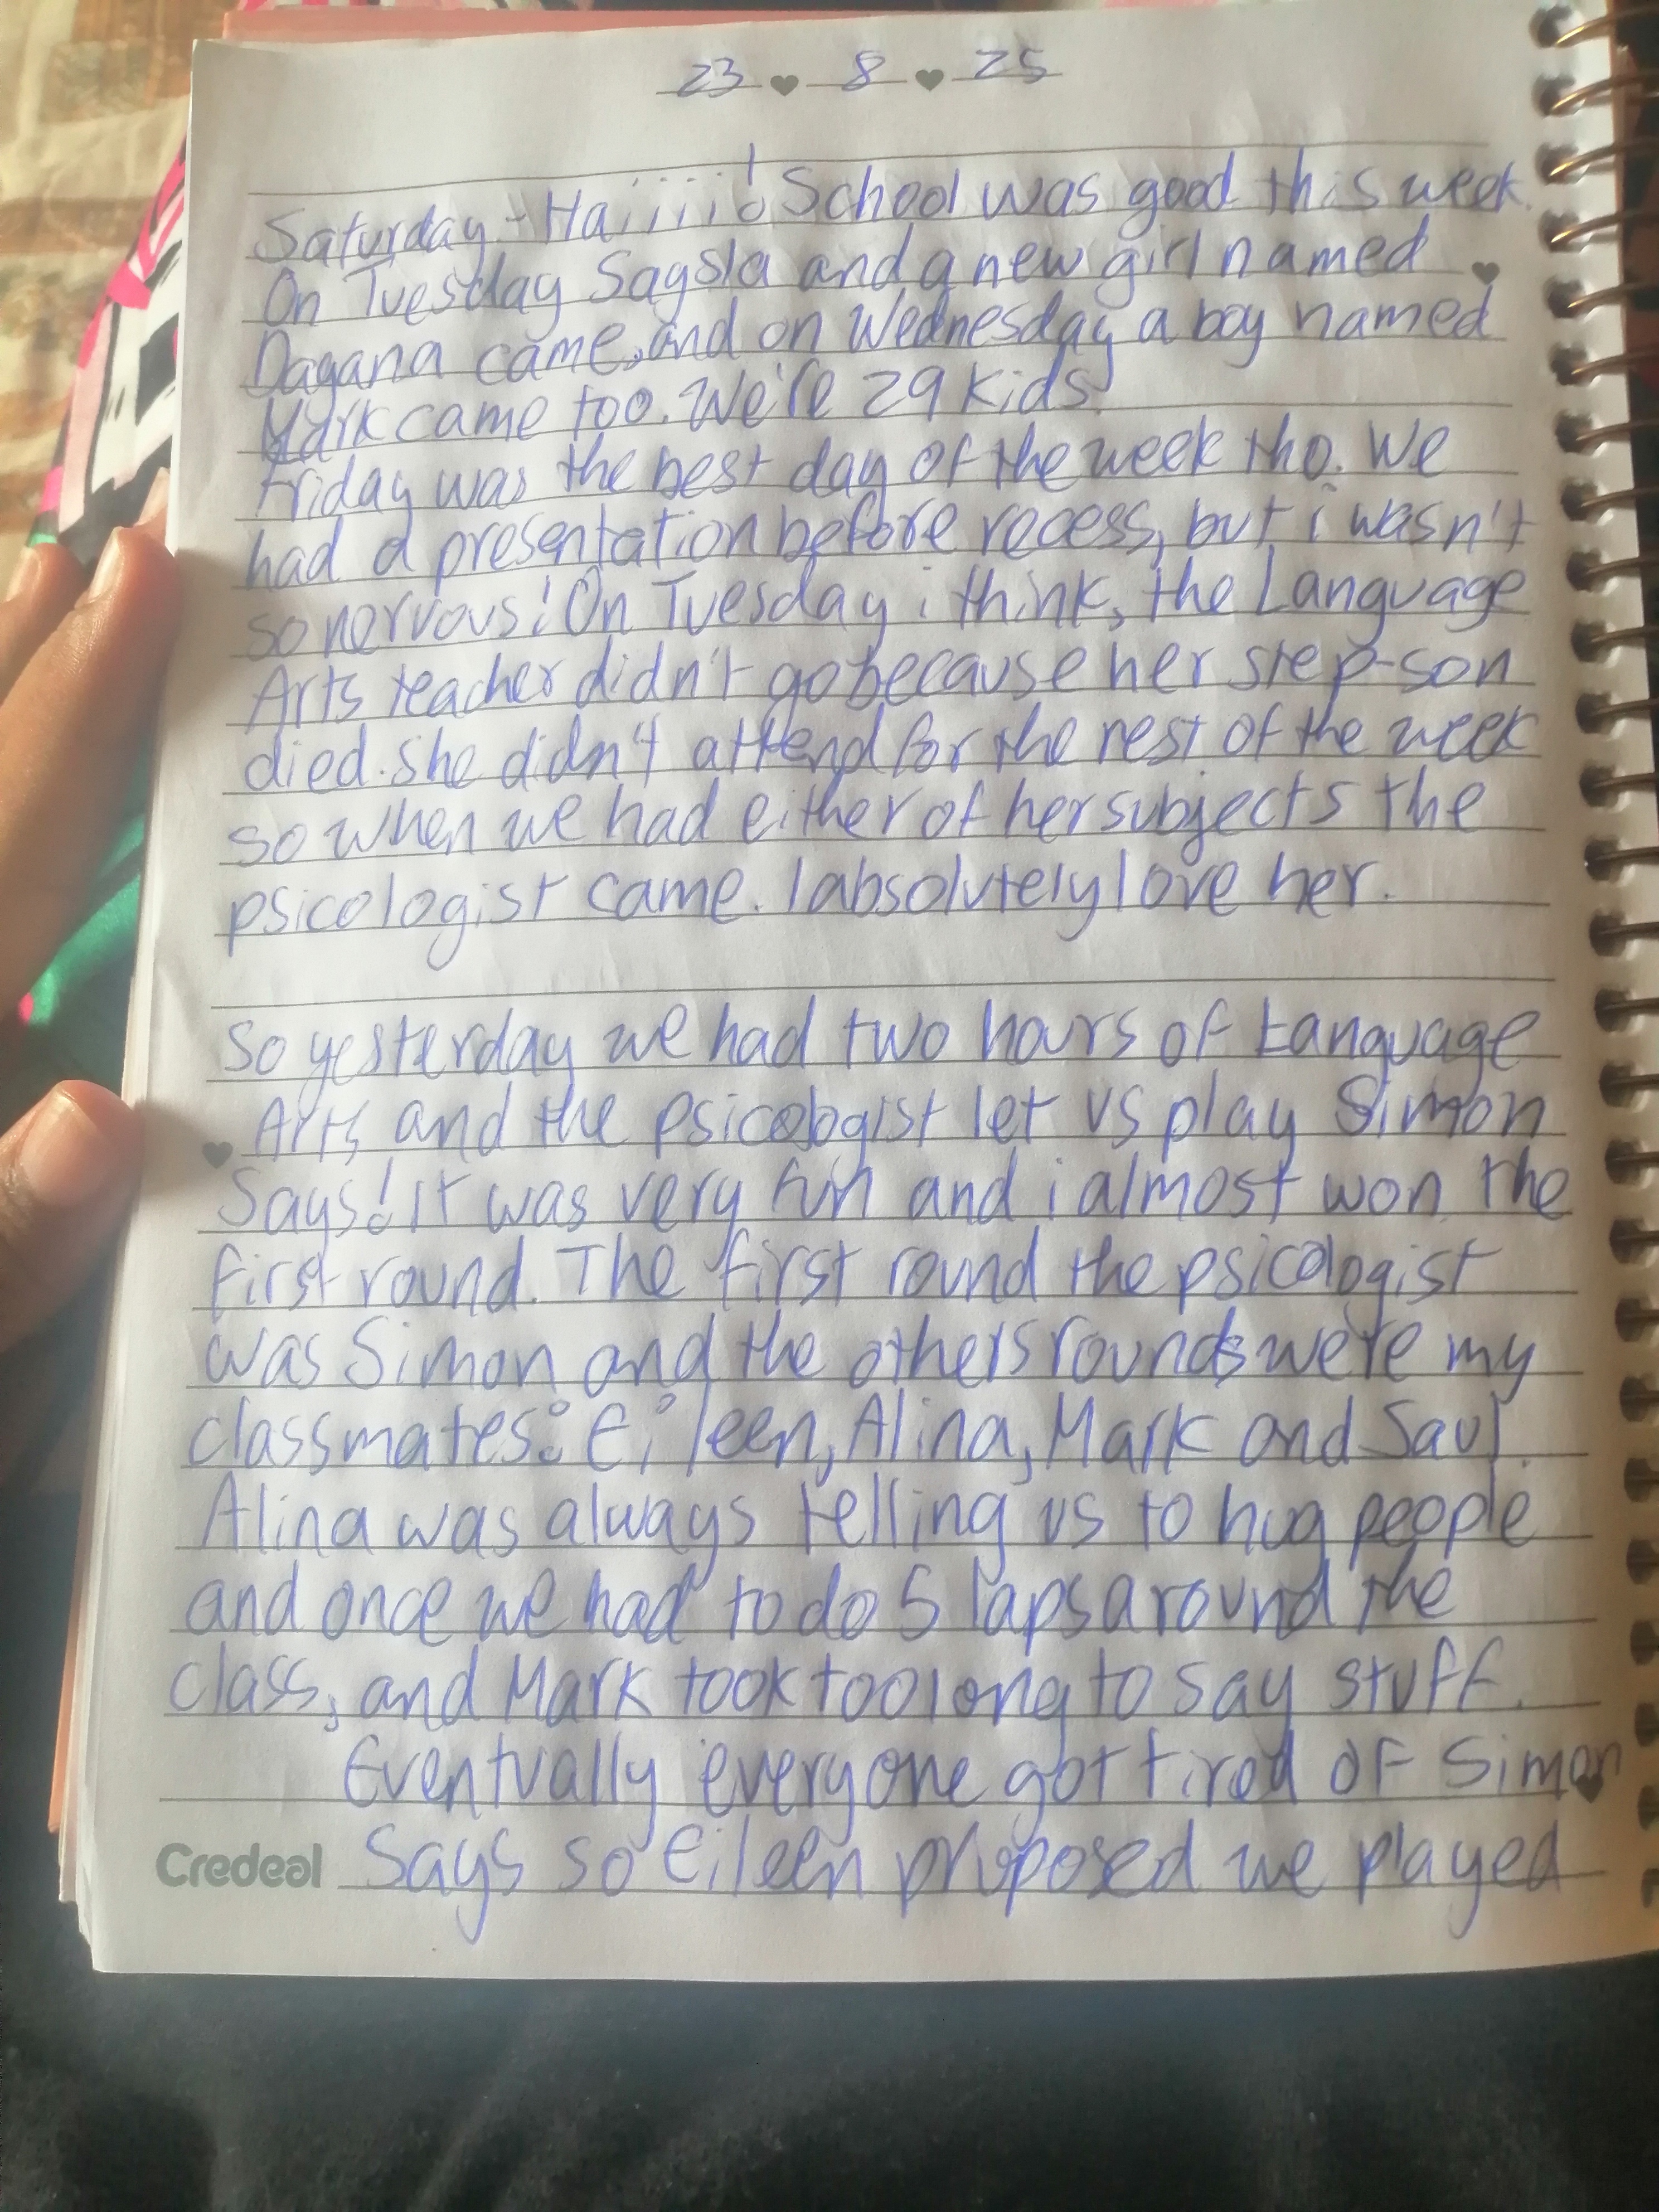 23 ♥ 8 ♥ 25
Saturday - Haiiiii! School was good this week.
On Tuesday Saysla and a new girl named
Dayana came, and on Wednesday a boy named
Mark came too. We're 29 kids.
Friday was the best day of the week tho. We
had a presentation before recess, but i wasn't
so nervous! On Tuesday i think, the Language
Arts teacher didn't go because her step-son
died. She didn't attend for the rest of the week
so when we had either of her subjects the
psicologist came. I absolutely love her.
So yesterday we had two hours of Language
Arts and the psicologist let us play Simon
Says! It was very fun and i almost won the
first round. The first round the psicologist
was Simon and the others rounds were my
classmates: Eileen, Alina, Mark and Saul.
Alina was always telling us to hug people
and once we had to do 5 laps around the
class, and Mark took too long to say stuff.
Eventually everyone got tired of Simon
Credeal Says so Eileen proposed we played